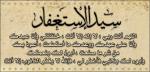 سيد الاستغفار
اللهم أنت ربي لا إله إلا أنت خلقتني وأنا عبدك
وأنا على عهدك ووعدك ما استطعت أعوذ بك
من شر ما صنعت أبوء لك بنعمتك علي
وأبوء لك بذنبي فاغفر لي فإنه لا يغفر الذنوب إلا أنت